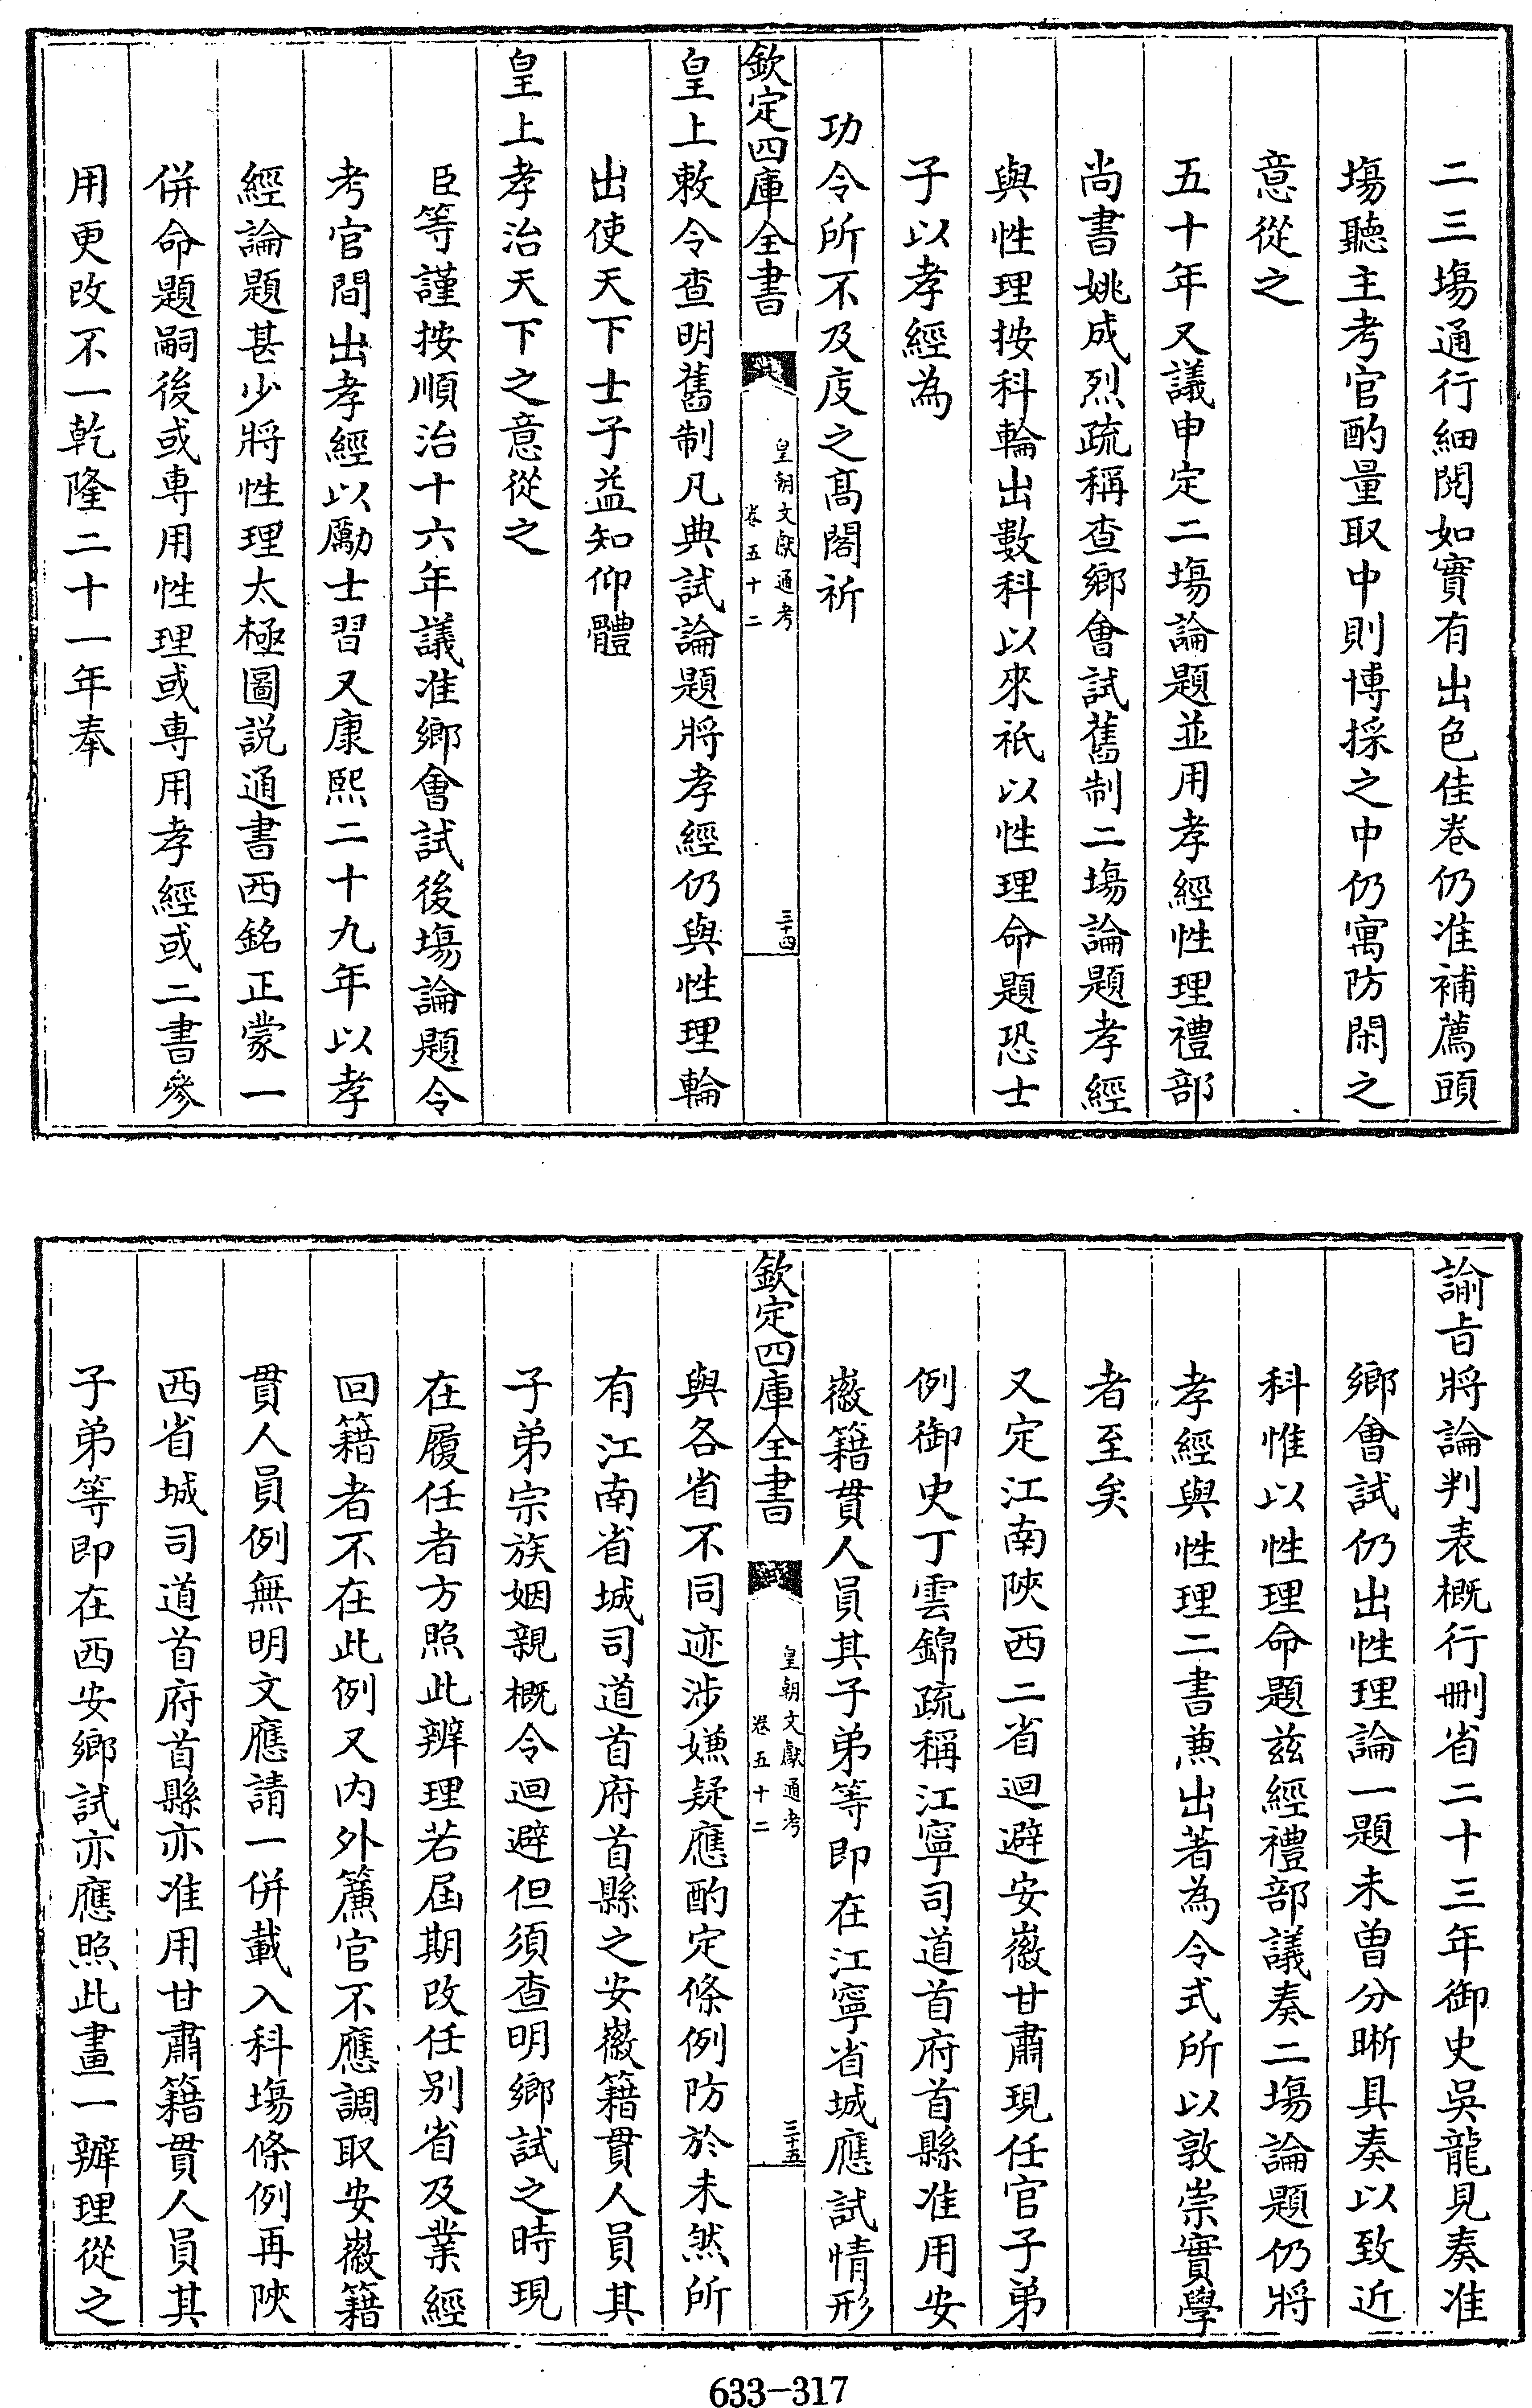 二三場通行細閱如實有出色佳卷仍准補薦頭
場聽主考官酌量取中則博採之中仍寓防閑之
意從之
五十年又議申定二場論題並用孝經性理禮部
尚書姚成烈疏稱查鄉會試舊制二場論題孝經
與性理按科輪出數科以來祇以性理命題恐士
子以孝經為
功令所不及庋之高閣祈
欽定四庫全書
皇朝文獻通考
卷五十二
三十四
皇上敕令查明舊制凡典試論題將孝經仍與性理輪
出使天下士子益知仰體
皇上孝治天下之意從之
臣等謹按順治十六年議准鄉會試後場論題令
考官間出孝經以勵士習又康熙二十九年以孝
經論題甚少將性理太極圖説通書西銘正蒙一
併命題嗣後或專用性理或專用孝經或二書參
用更改不一乾隆二十一年奉
諭旨將論判表概行刪省二十三年御史吳龍見奏准
鄉會試仍出性理論一題未曾分晰具奏以致近
科惟以性理命題茲經禮部議奏二場論題仍將
孝經與性理二書兼出著為令式所以敦崇實學
者至矣
又定江南陝西二省迴避安徽甘肅現任官子弟
例御史丁雲錦疏稱江寧司道首府首縣准用安
徽籍貫人員其子弟等即在江寧省城應試情形
欽定四庫全書
皇朝文獻通考
卷五十二
三十五
與各省不同迹涉嫌疑應酌定條例防於未然所
有江南省城司道首府首縣之安徽籍貫人員其
子弟宗族姻親概令迴避但須查明鄉試之時現
在履任者方照此辦理若屆期改任别省及業經
回籍者不在此例又内外簾官不應調取安徽籍
貫人員例無明文應請一併載入科場條例再陝
西省城司道首府首縣亦准用甘肅籍貫人員其
子弟等即在西安鄉試亦應照此畫一辦理從之
633-317